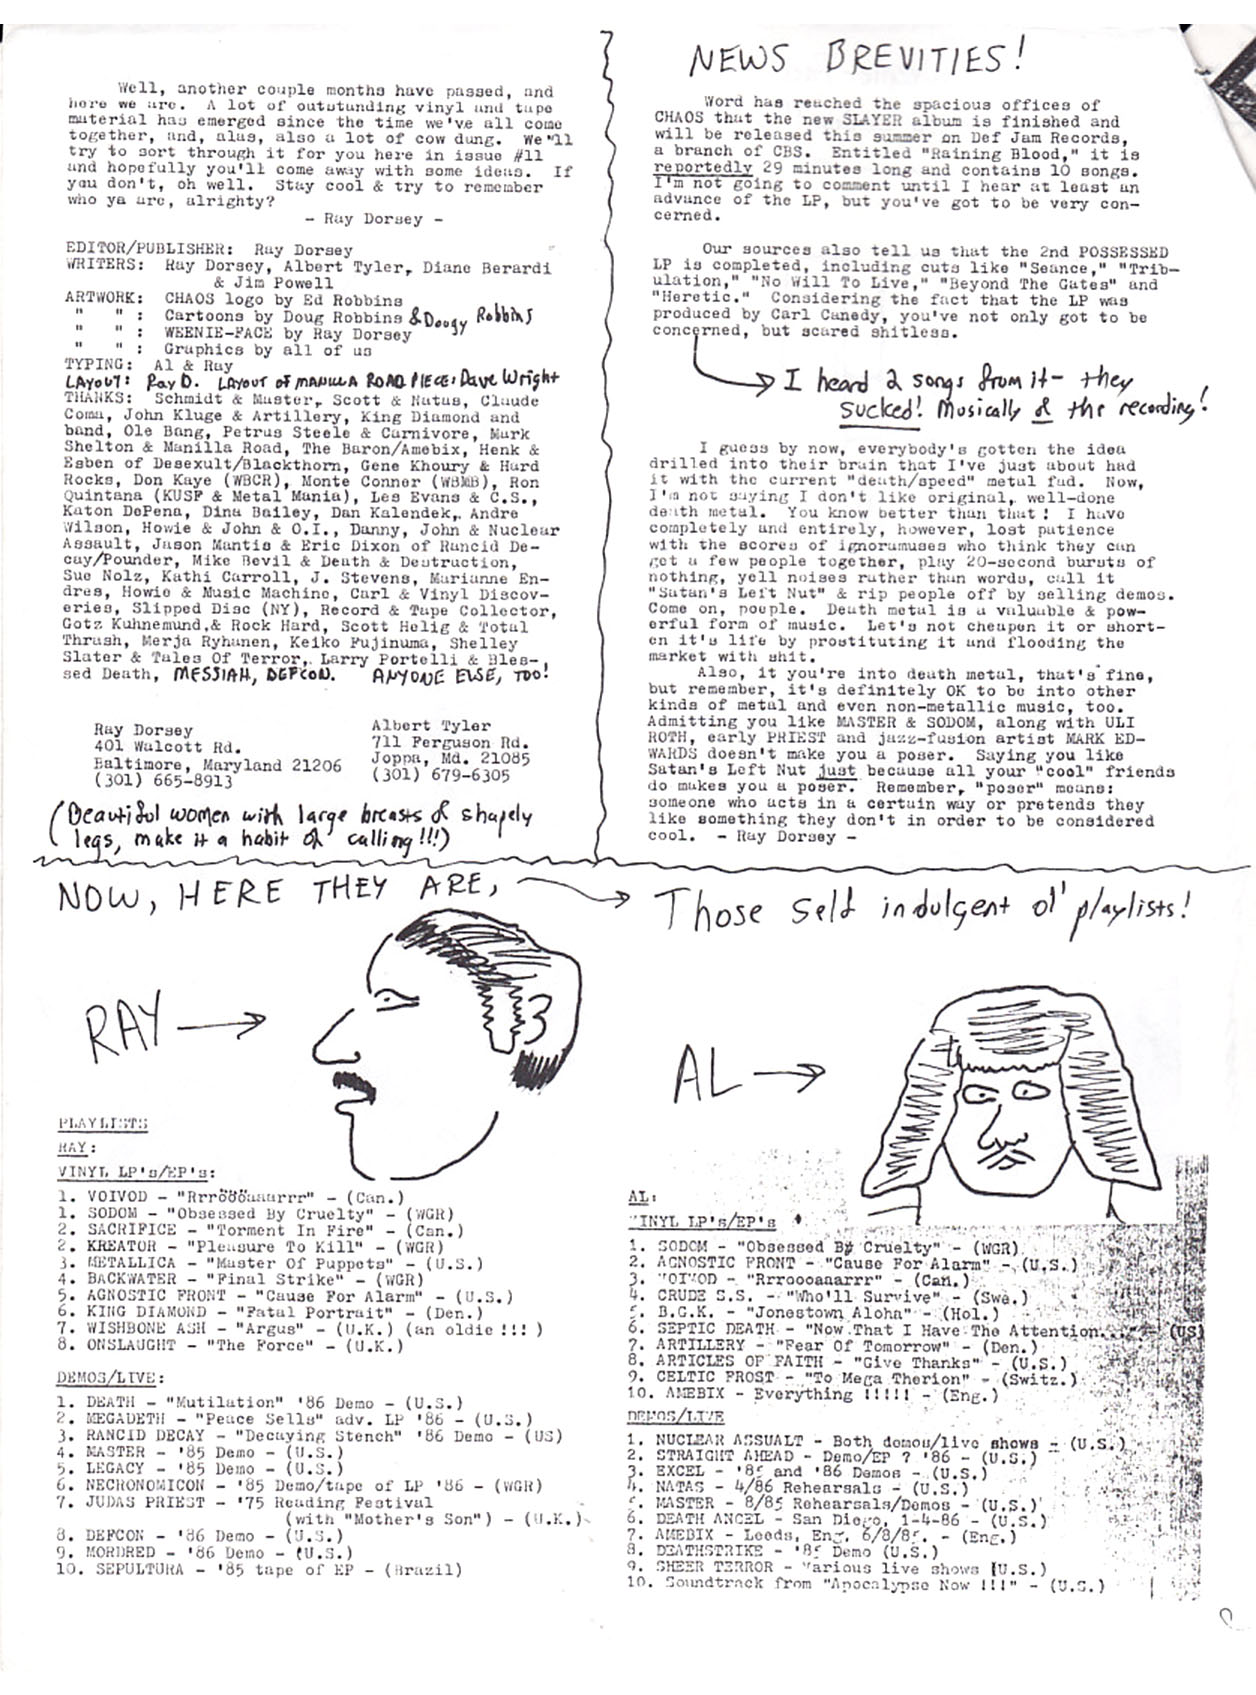 Well, another couple months have passed, and
here we are. A lot of outstanding vinyl and tape
material has emerged since the time we've all come
together, and, alas, also a lot of cow dung. We'll
try to sort through it for you here in issue #11
and hopefully you'll come away with some ideas. If
you don't, oh well. Stay cool & try to remember
who ya are, alrighty?
- Ray Dorsey -
EDITOR/PUBLISHER: Ray Dorsey
WRITERS: Ray Dorsey, Albert Tyler, Diane Berardi
& Jim Powell
ARTWORK: CHAOS logo by Ed Robbins
" " : Cartoons by Doug Robbins & Dougy Robbins
" " : WEENIE-FACE by Ray Dorsey
" " : Graphics by all of us
TYPING: Al & Ray
LAYOUT: Ray D. LAYOUT OF MANILLA ROAD PIECE: Dave Wright
THANKS: Schmidt & Master, Scott & Natas, Claude
Coma, John Kluge & Artillery, King Diamond and
band, Ole Bang, Petrus Steele & Carnivore, Mark
Shelton & Manilla Road, The Baron/Amebix, Henk &
Esben of Desexult/Blackthorn, Gene Khoury & Hard
Rocks, Don Kaye (WBCR), Monte Conner (WBMB), Ron
Quintana (KUSF & Metal Mania), Les Evans & C.S.,
Katon DePena, Dina Bailey, Dan Kalendek, Andre
Wilson, Howie & John & O.I., Danny, John & Nuclear
Assault, Jason Mantis & Eric Dixon of Rancid De-
cay/Pounder, Mike Bevil & Death & Destruction,
Sue Nolz, Kathi Carroll, J. Stevens, Marianne En-
dres, Howie & Music Machine, Carl & Vinyl Discov-
eries, Slipped Disc (NY), Record & Tape Collector,
Gotz Kuhnemund,& Rock Hard, Scott Helig & Total
Thrash, Merja Ryhanen, Keiko Fujinuma, Shelley
Slater & Tales Of Terror, Larry Portelli & Bles-
sed Death, MESSIAH, DEFCON. ANYONE ELSE, TOO!
Ray Dorsey
401 Walcott Rd.
Baltimore, Maryland 21206
(301) 665-8913
Albert Tyler
711 Ferguson Rd.
Joppa, Md. 21085
(301) 679-6305
(Beautiful women with large breasts & shapely
legs, make it a habit of calling!!!)
NEWS BREVITIES!
Word has reached the spacious offices of
CHAOS that the new SLAYER album is finished and
will be released this summer on Def Jam Records,
a branch of CBS. Entitled "Raining Blood," it is
reportedly 29 minutes long and contains 10 songs.
I'm not going to comment until I hear at least an
advance of the LP, but you've got to be very con-
cerned.
Our sources also tell us that the 2nd POSSESSED
LP is completed, including cuts like "Seance," "Trib-
ulation," "No Will To Live," "Beyond The Gates" and
"Heretic." Considering the fact that the LP was
produced by Carl Canedy, you've not only got to be
concerned, but scared shitless.
I heard 2 songs from it - they
sucked! Musically & the recording!
I guess by now, everybody's gotten the idea
drilled into their brain that I've just about had
it with the current "death/speed" metal fad. Now,
I'm not saying I don't like original, well-done
death metal. You know better than that! I have
completely and entirely, however, lost patience
with the scores of ignoramuses who think they can
get a few people together, play 20-second bursts of
nothing, yell noises rather than words, call it
"Satan's Left Nut" & rip people off by selling demos.
Come on, people. Death metal is a valuable & pow-
erful form of music. Let's not cheapen it or short-
en it's life by prostituting it and flooding the
market with shit.
Also, it you're into death metal, that's fine,
but remember, it's definitely OK to be into other
kinds of metal and even non-metallic music, too.
Admitting you like MASTER & SODOM, along with ULI
ROTH, early PRIEST and jazz-fusion artist MARK ED-
WARDS doesn't make you a poser. Saying you like
Satan's Left Nut just because all your "cool" friends
do makes you a poser. Remember, "poser" means:
someone who acts in a certain way or pretends they
like something they don't in order to be considered
cool. - Ray Dorsey -
NOW, HERE THEY ARE, Those self indulgent ol' playlists!
RAY
AL
PLAYLISTS
RAY:
VINYL LP's/EP's:
1. VOIVOD - "Rrröööaaarrr" - (Can.)
1. SODOM - "Obsessed By Cruelty" - (WGR)
2. SACRIFICE - "Torment In Fire" - (Can.)
2. KREATOR - "Pleasure To Kill" - (WGR)
3. METALLICA - "Master Of Puppets" - (U.S.)
4. BACKWATER - "Final Strike" - (WGR)
5. AGNOSTIC FRONT - "Cause For Alarm" - (U.S.)
6. KING DIAMOND - "Fatal Portrait" - (Den.)
7. WISHBONE ASH - "Argus" - (U.K.) (an oldie !!! )
8. ONSLAUGHT - "The Force" - (U.K.)
DEMOS/LIVE:
1. DEATH - "Mutilation" '86 Demo - (U.S.)
2. MEGADETH - "Peace Sells" adv. LP '86 - (U.S.)
3. RANCID DECAY - "Decaying Stench" '86 Demo - (US)
4. MASTER - '85 Demo - (U.S.)
5. LEGACY - '85 Demo - (U.S.)
6. NECRONOMICON - '85 Demo/tape of LP '86 - (WGR)
7. JUDAS PRIEST - '75 Reading Festival
(with "Mother's Son") - (U.K.)
8. DEFCON - '86 Demo - (U.S.)
9. MORDRED - '86 Demo - (U.S.)
10. SEPULTURA - '85 tape of EP - (Brazil)
AL:
VINYL LP's/EP's
1. SODOM - "Obsessed By Cruelty" - (WGR)
2. AGNOSTIC FRONT - "Cause For Alarm" - (U.S.)
3. VOIVOD - "Rrroooaaarrr" - (Can.)
4. CRUDE S.S. - "Who'll Survive" - (Swe.)
5. B.G.K. - "Jonestown Aloha" - (Hol.)
6. SEPTIC DEATH - "Now That I Have The Attention... - (US)
7. ARTILLERY - "Fear Of Tomorrow" - (Den.)
8. ARTICLES OF FAITH - "Give Thanks" - (U.S.)
9. CELTIC FROST - "To Mega Therion" - (Switz.)
10. AMEBIX - Everything !!!!! - (Eng.)
DEMOS/LIVE
1. NUCLEAR ASSUALT - Both demos/live shows - (U.S.)
2. STRAIGHT AHEAD - Demo/EP ? '86 - (U.S.)
3. EXCEL - '85 and '86 Demos - (U.S.)
4. NATAS - 4/86 Rehearsals - (U.S.)
5. MASTER - 8/85 Rehearsals/Demos - (U.S.)
6. DEATH ANGEL - San Diego, 1-4-86 - (U.S.)
7. AMEBIX - Leeds, Eng. 6/8/85. - (Eng.)
8. DEATHSTRIKE - '85 Demo (U.S.)
9. SHEER TERROR - Various live shows (U.S.)
10. Soundtrack from "Apocalypse Now !!!" - (U.S.)